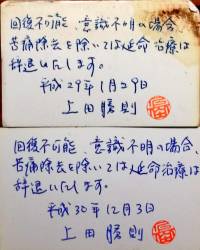 回復不可能、意識不明の場合、
苦痛除去を除いては延命治療は
辞退いたします。
平成29年1月29日
上田勝則
回復不可能、意識不明の場合、
苦痛除去を除いては延命治療は
辞退いたします。
平成30年12月3日
上田勝則